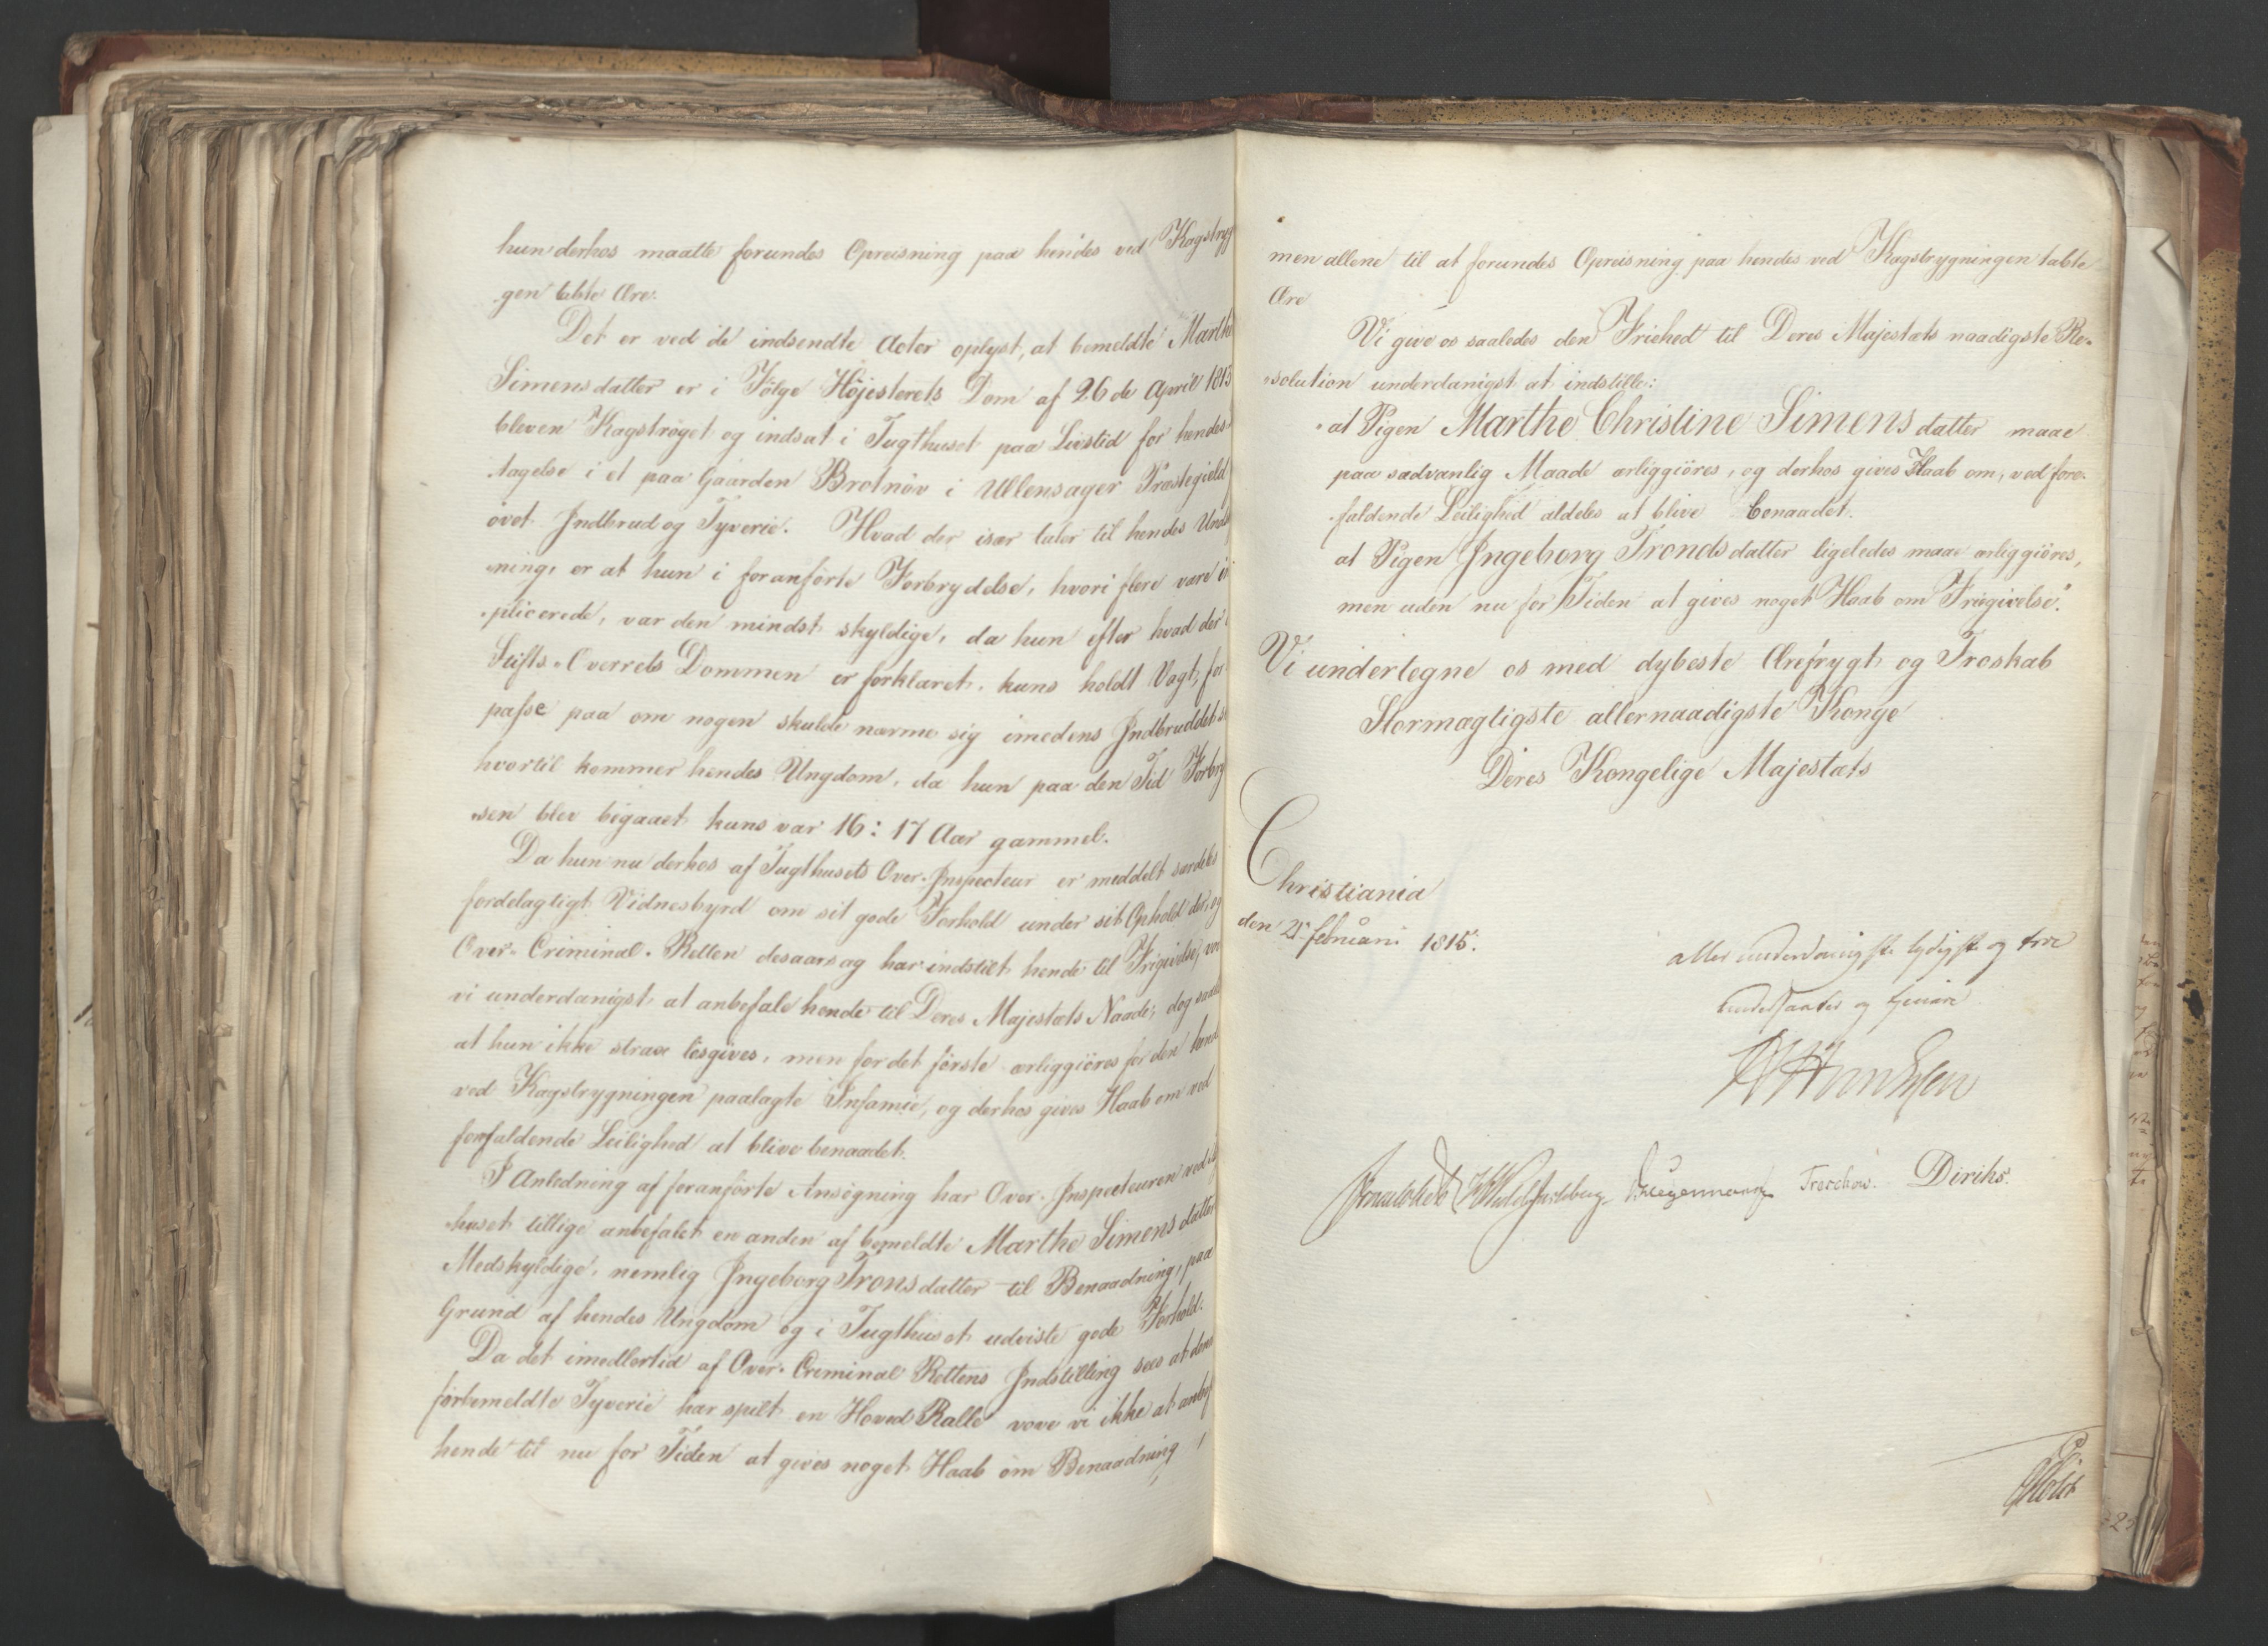 hun derhos maatte forundes Opreisning paa hendes ved Kagstryg
gen tabte Ære.
Det er ved de indsendte Acter oplyst, at bemeldte Marthe
Simensdatter er i Følge Høiesterets Dom af 26de April 1813
bleven Kagstrøget og indsat i Tugthuset paa Livstid for hendes
tagelse i et paa Gaarden Brotnøv i Ullensager Præstegield
øvet Indbrud og Tyverie. Hvad der især taler til hendes Und
ning, er at hun i foranførte Forbrydelse, hvori flere vare i
plicerede, var den mindst skyldige, da hun efter hvad der i
Stifts-Overrets Dommen er forklaret, kuns holdt Vagt, for
passe paa om nogen skulde nærme sig imedens Indbruddet
hvortil kommer hendes Ungdom, da hun paa den Tid Forbry
sen blev begaaet kuns var 16: 17 Aar gammel.
Da hun nu derhos af Tugthusets Over-Inspecteur er meddelt særdeles
fordelagtigt Vidnesbyrd om sit gode Forhold under sit Ophold der, og
Over-Criminal-Retten desaarsag har indstilt hende til Frigivelse, vove
vi underdanigst at anbefale hende til Deres Majestæts Naade, dog saal
at hun ikke strax løsgives, men for det første ærliggiøres for den hend
ved Kagstrygningen paalagte Infamie, og derhos gives Haab om ved
forefaldende Leilighed at blive benaadet.
I Anledning af foranførte Ansøgning har Over-Inspecteuren ved
huset tillige anbefalet en anden af bemeldte Marthe Simensdatters
Medskyldige, nemlig Ingeborg Tronsdatter til Benaadning, paa
Grund af hendes Ungdom og i Tugthuset udviste gode Forhold.
Da det imedlertid af Over-Criminal Rettens Indstilling sees at denne
førbemeldte Tyverie har spilt en Hoved Ralle vove vi ikke at anbef
hende til nu for Tiden at gives noget Haab om Benaadning,
men allene til at forundes Opreisning paa hendes ved Kagstrygningen tabte
Ære
Vi give os saaledes den Friehed til Deres Majestæts naadigste Re-
solution underdanigst at indstille:
"at Pigen Marthe Christine Simensdatter maae
paa sædvanlig Maade ærliggiøres, og derhos gives Haab om, ved fore-
faldende Leilighed aldeles at blive benaadet.
at Pigen Ingeborg Trondsdatter ligeledes maae ærliggiøres,
men uden nu for Tiden at gives noget Haab om Frigivelse."
Vi undertegne os med dybeste Ærefrygt og Troskab
Stormægtigste allernaadigste Konge
Deres Kongelige Majestæts
Christiania
den 21 Februari 1815.
aller underdanigste lydigste og troe
undersaatter og tienere
Diriks.
Treschow.